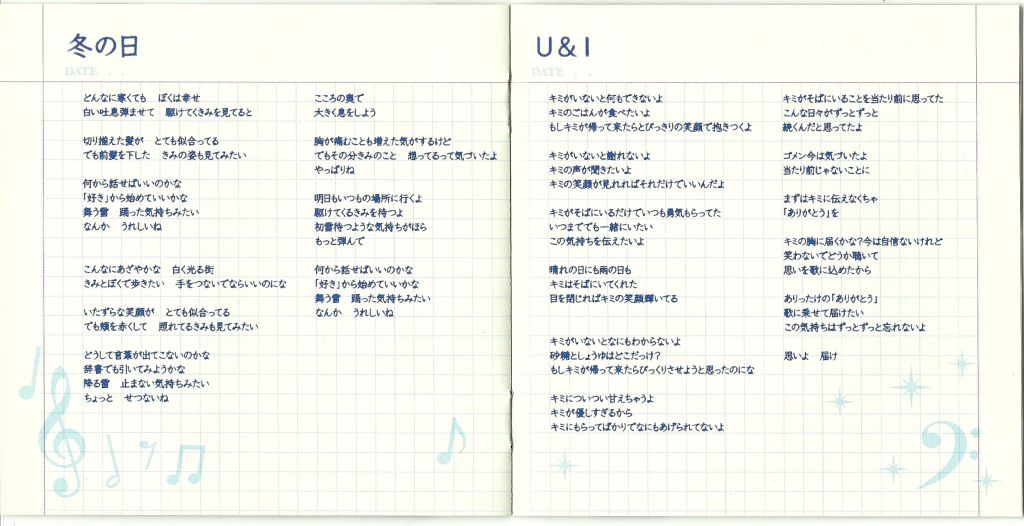 冬の日
DATE . .
どんなに寒くても　ぼくは幸せ
白い吐息弾ませて　駆けてくきみを見てると
切り揃えた髪が　とても似合ってる
でも前髪を下した　きみの姿も見てみたい
何から話せばいいのかな
「好き」から始めていいかな
舞う雪　踊った気持ちみたい
なんか　うれしいね
こんなにあざやかな　白く光る街
きみとぼくで歩きたい　手をつないでならいいのにな
いたずらな笑顔が　とても似合ってる
でも頬を赤くして　照れてるきみも見てみたい
どうして言葉が出てこないのかな
辞書でも引いてみようかな
降る雪　止まない気持ちみたい
ちょっと　せつないね
こころの奥で
大きく息をしよう
胸が痛むことも増えた気がするけど
でもその分きみのこと　想ってるって気づいたよ
やっぱりね
明日もいつもの場所に行くよ
駆けてくるきみを待つよ
初雪待つような気持ちがほら
もっと弾んで
何から話せばいいのかな
「好き」から始めていいかな
舞う雪　踊った気持ちみたい
なんか　うれしいね
U＆I
DATE . .
キミがいないと何もできないよ
キミのごはんが食べたいよ
もしキミが帰って来たらとびっきりの笑顔で抱きつくよ
キミがいないと謝れないよ
キミの声が聞きたいよ
キミの笑顔が見れればそれだけでいいんだよ
キミがそばにいるだけでいつも勇気もらってた
いつまででも一緒にいたい
この気持ちを伝えたいよ
晴れの日にも雨の日も
キミはそばにいてくれた
目を閉じればキミの笑顔輝いてる
キミがいないとなにもわからないよ
砂糖としょうゆはどこだっけ？
もしキミが帰って来たらびっくりさせようと思ったのにな
キミについつい甘えちゃうよ
キミが優しすぎるから
キミにもらってばかりでなにもあげられてないよ
キミがそばにいることを当たり前に思ってた
こんな日々がずっとずっと
続くんだと思ってたよ
ゴメン今は気づいたよ
当たり前じゃないことに
まずはキミに伝えなくちゃ
「ありがとう」を
キミの胸に届くかな？今は自信ないけれど
笑わないでどうか聴いて
思いを歌に込めたから
ありったけの「ありがとう」
歌に乗せて届けたい
この気持ちはずっとずっと忘れないよ
思いよ　届け